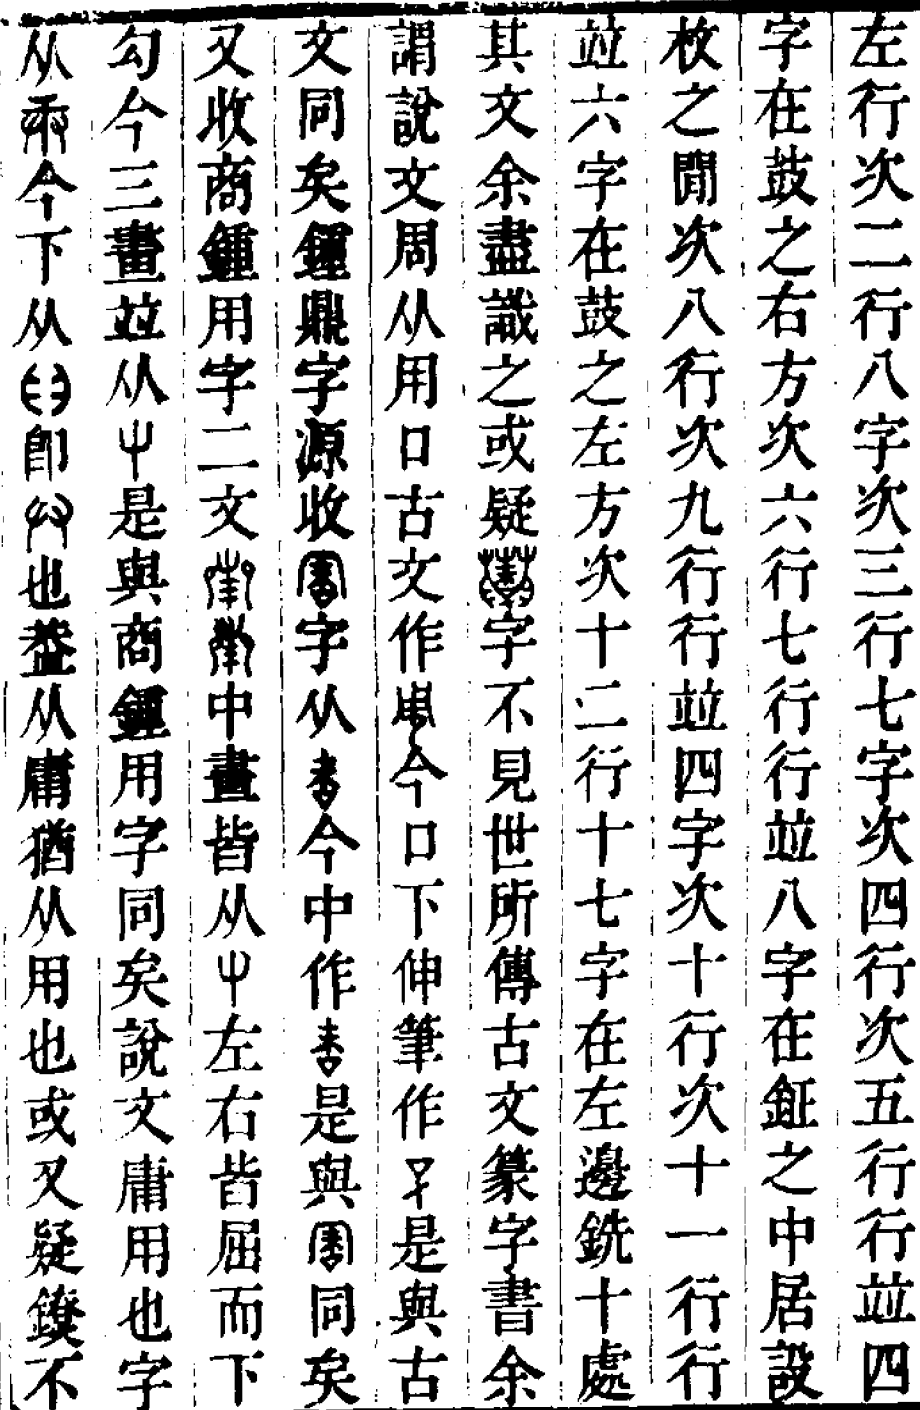 左行次二行八字次三行七字次四行次五行行並四
字在鼓之右方次六行七行行並八字在鉦之中居設
枚之閒次八行次九行行並四字次十行次十一行行
並六字在鼓之左方次十二行十七字在左邊銑十處
其文余盡識之或疑字不見世所傳古文篆字書余
謂說文周从用口古文作今口下伸筆作是與古
文同矣鍾鼎字源收字从今中作是與同矣
又收商鍾用字二文中畫皆从屮左右皆屈而下
勾今三畫並从屮是與商鍾用字同矣說文庸用也字
从今下从卽也蓋从庸猶从用也或又疑鐐不